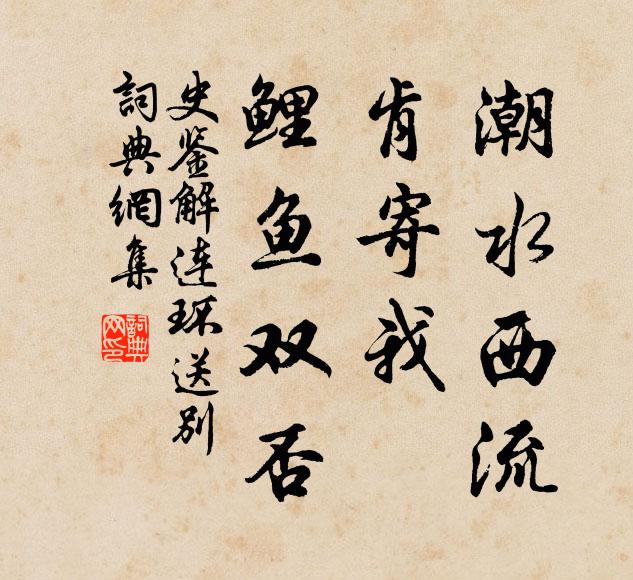 潮水西流
肯寄我
鲤鱼双否
史鉴解连环送别
詞典網集
詞典网印